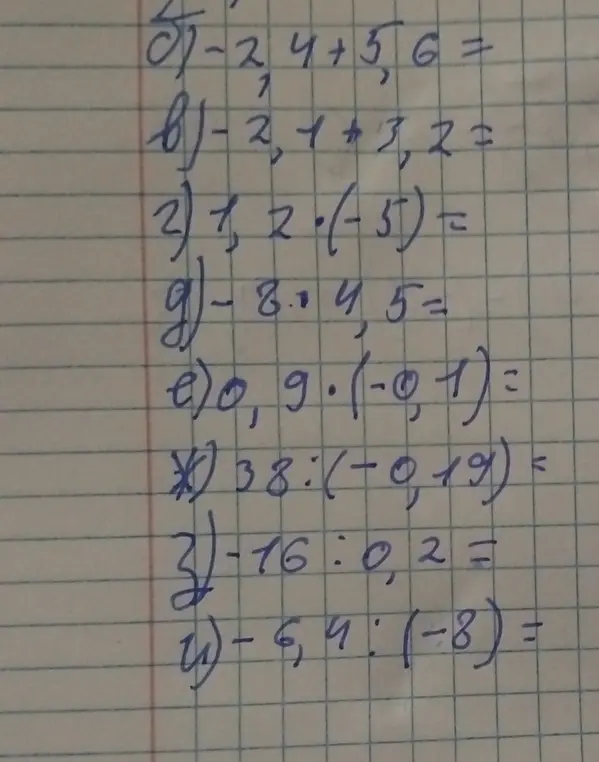 б) -2,4+5,6=
в) -2,1+3,2=
г) 1,2·(-5)=
д) -8·4,5=
е) 0,9·(-0,1)=
ж) 38:(-0,19)=
з) -16:0,2=
и) -6,4:(-8)=